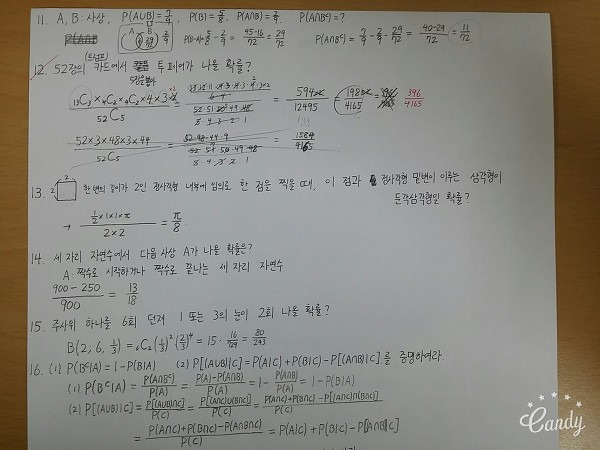 11. A, B: 사상, P(A∪B)=7/9, P(B)=5/8, P(A∩B)=2/9. P(A∩Bᶜ)=?
A B 29/72 2/9 P(B-A)=5/8-2/9=(45-16)/72=29/72 P(A∩Bᶜ)=7/9-2/9-29/72=(40-29)/72=11/72
(트럼프)
12. 52장의 카드에서 투 페어가 나올 확률?
₁₃C₃×₄C₂×₄C₂×4×3 / ₅₂C₅ = 594/12495 = 198/4165 = 396/4165
52×3×48×3×44 / ₅₂C₅ = 1584/4165
13. 2 2 한 변의 길이가 2인 정사각형 내부에 임의로 한 점을 찍을 때, 이 점과 정사각형 밑변이 이루는 삼각형이
둔각삼각형일 확률?
→ (1/2×1×1×π)/(2×2) = π/8
14. 세 자리 자연수에서 다음 사상 A가 나올 확률은?
A: 짝수로 시작하거나 짝수로 끝나는 세 자리 자연수
(900-250)/900 = 13/18
15. 주사위 하나를 6회 던져 1 또는 3의 눈이 2회 나올 확률?
B(2, 6, 1/3) = ₆C₂(1/3)²(2/3)⁴ = 15·16/729 = 80/243
16. (1) P(Bᶜ|A)=1-P(B|A) (2) P[(A∪B)|C]=P(A|C)+P(B|C)-P[(A∩B)|C]를 증명하여라.
(1) P(Bᶜ|A)=P(A∩Bᶜ)/P(A)=(P(A)-P(A∩B))/P(A)=1-P(A∩B)/P(A)=1-P(B|A)
(2) P[(A∪B)|C]=P[(A∪B)∩C]/P(C)=P[(A∩C)∪(B∩C)]/P(C)=(P(A∩C)+P(B∩C)-P[(A∩C)∩(B∩C)])/P(C)
=(P(A∩C)+P(B∩C)-P(A∩B∩C))/P(C)=P(A|C)+P(B|C)-P[A∩B|C]
Candy